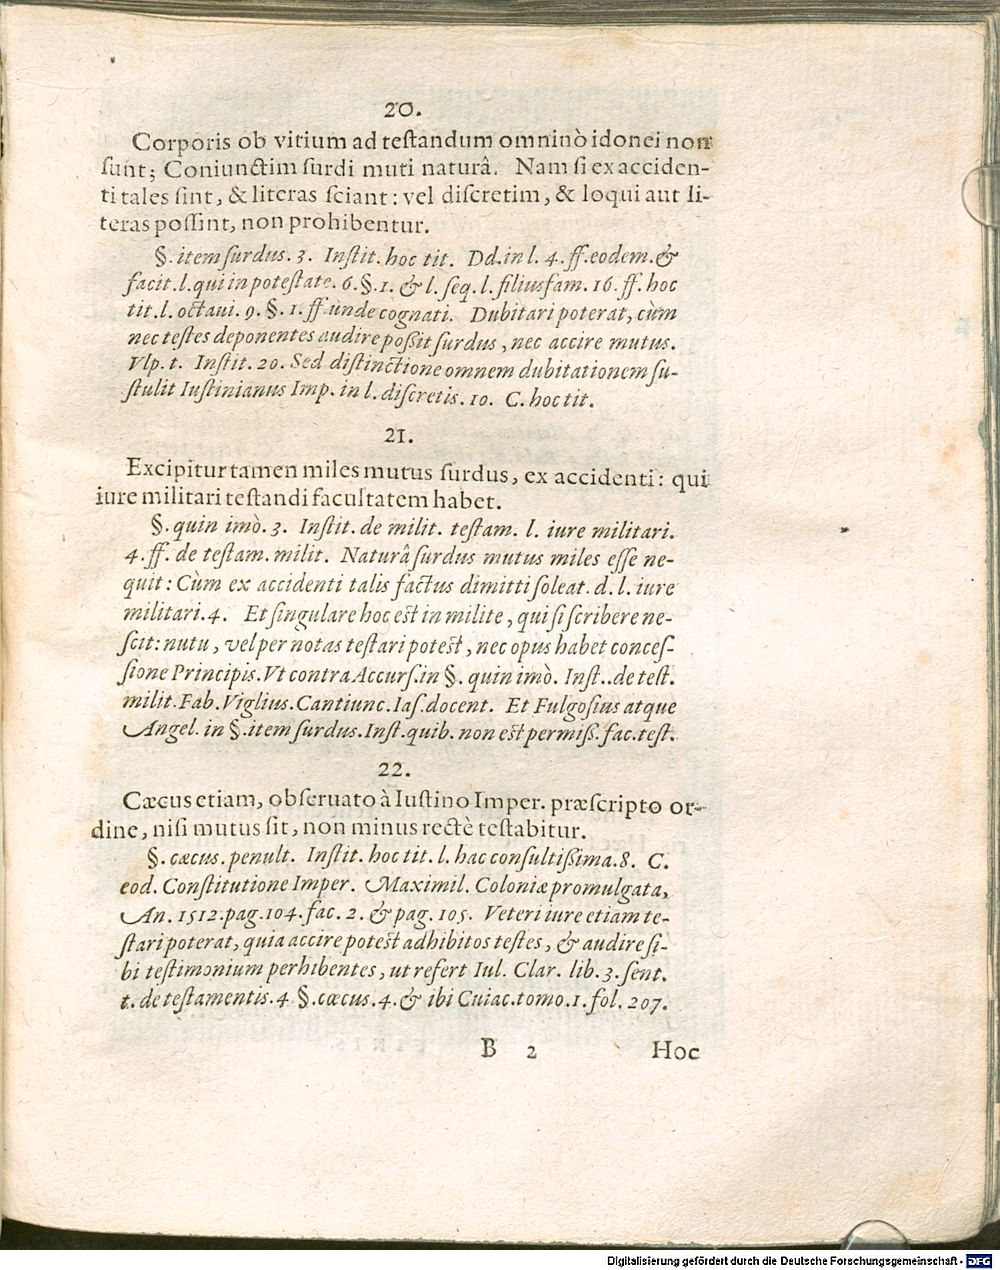 20.
Corporis ob vitium ad teſtandum omninò idonei non
ſunt; Coniunctim ſurdi muti naturâ. Nam ſi ex acciden-
ti tales ſint, & literas ſciant: vel diſcretim, & loqui aut li-
teras poſſint, non prohibentur.
§. item ſurdus. 3. Inſtit. hoc tit. Dd. in l. 4. ff. eodem. &
facit. l. qui in poteſtate. 6. §. 1. & l. ſeq. l. filiusfam. 16. ff. hoc
tit. l. octaui. 9. §. 1. ff unde cognati. Dubitari poterat, cùm
nec teſtes deponentes audire poßit ſurdus, nec accire mutus.
Vlp. t. Inſtit. 20. Sed diſtinctione omnem dubitationem ſu-
ſtulit Iuſtinianus Imp. in l. diſcretis. 10. C. hoc tit.
21.
Excipitur tamen miles mutus ſurdus, ex accidenti: qui
iure militari teſtandi facultatem habet.
§. quin imò. 3. Inſtit. de milit. teſtam. l. iure militari.
4. ff. de teſtam. milit. Naturâ ſurdus mutus miles eſſe ne-
quit: Cùm ex accidenti talis factus dimitti ſoleat. d. l. iure
militari. 4. Et ſingulare hoc eſt in milite, qui ſi ſcribere ne-
ſcit: nutu, vel per notas teſtari poteſt, nec opus habet conceſ-
ſione Principis. Vt contra Accurſ. in §. quin imò. Inſt.. de teſt.
milit. Fab. Viglius. Cantiunc. Iaſ. docent. Et Fulgoſius atque
Angel. in §. item ſurdus. Inſt. quib. non eſt permiß. fac. teſt.
22.
Cæcus etiam, obſeruato à Iuſtino Imper. præſcripto or-
dine, niſi mutus ſit, non minus rectè teſtabitur.
§. cæcus. penult. Inſtit. hoc tit. l. hac conſultißima. 8. C.
eod. Conſtitutione Imper. Maximil. Coloniæ promulgata,
An. 1512. pag. 104. fac. 2. & pag. 105. Veteri iure etiam te-
ſtari poterat, quia accire poteſt adhibitos teſtes, & audire ſi-
bi teſtimonium perhibentes, ut refert Iul. Clar. lib. 3. ſent.
t. de teſtamentis. 4 §. cæcus. 4. & ibi Cuiac. tomo. 1. fol. 207.
B 2 Hoc
Digitalisierung gefördert durch die Deutsche Forschungsgemeinschaft - DFG